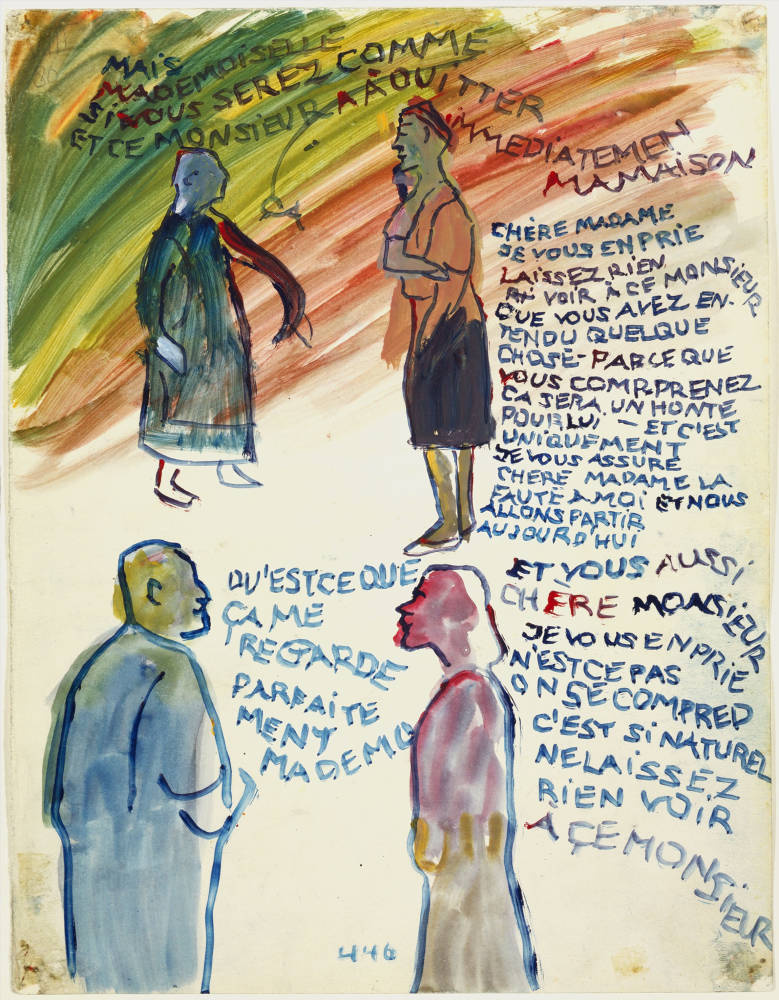 MAIS
MADEMOISELLE
SI VOUS SEREZ COMME
ET CE MONSIEUR A À QUITTER
IMMEDIATEMEN
MA MAISON
CHÈRE MADAME
JE VOUS EN PRIE
LAISSEZ RIEN
VOIR À CE MONSIEUR
QUE VOUS AVEZ EN-
TENDU QUELQUE
CHOSE - PARCE QUE
VOUS COMRPRENEZ
CA SERA UN HONTE
POUR LUI — ET C'EST
UNIQUEMENT
JE VOUS ASSURE
CHERE MADAME LA
FAUTE A MOI ET NOUS
ALLONS PARTIR
AUJOURD'HUI
QU'ESTCE QUE
ÇA ME
REGARDE
PARFAITE
MENT
MADEMO
ET VOUS AUSSI
CHERE MONSIEUR
JE VOUS EN PRIE
N'ESTCE PAS
ON SE COMPRED
C'EST SI NATUREL
NE LAISSEZ
RIEN VOIR
À ÇE MONSIEUR
446